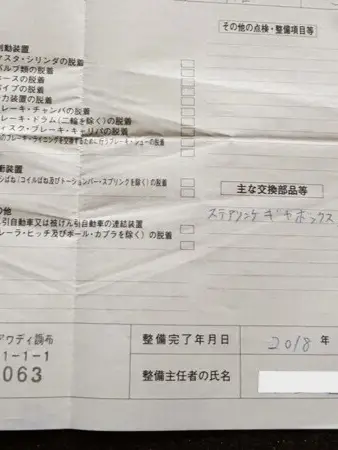 その他の点検・整備項目等
制動装置
マスタ・シリンダの脱着
バルブ類の脱着
ホースの脱着
パイプの脱着
力装置の脱着
ブレーキ・チャンバの脱着
ブレーキ・ドラム(二輪を除く)の脱着
ディスク・ブレーキ・キャリパの脱着
のブレーキ・ライニングを交換するために行う)ブレーキ・シューの脱着
衝装置
ばね(コイルばね及びトーションバー・スプリングを除く)の脱着
主な交換部品等
ステアリングギヤボックス
の他
引自動車又は被けん引自動車の連結装置
レーラ・ヒッチ及びボール・カプラを除く)の脱着
アウディ調布
1-1-1
063
整備完了年月日
2018 年
整備主任者の氏名